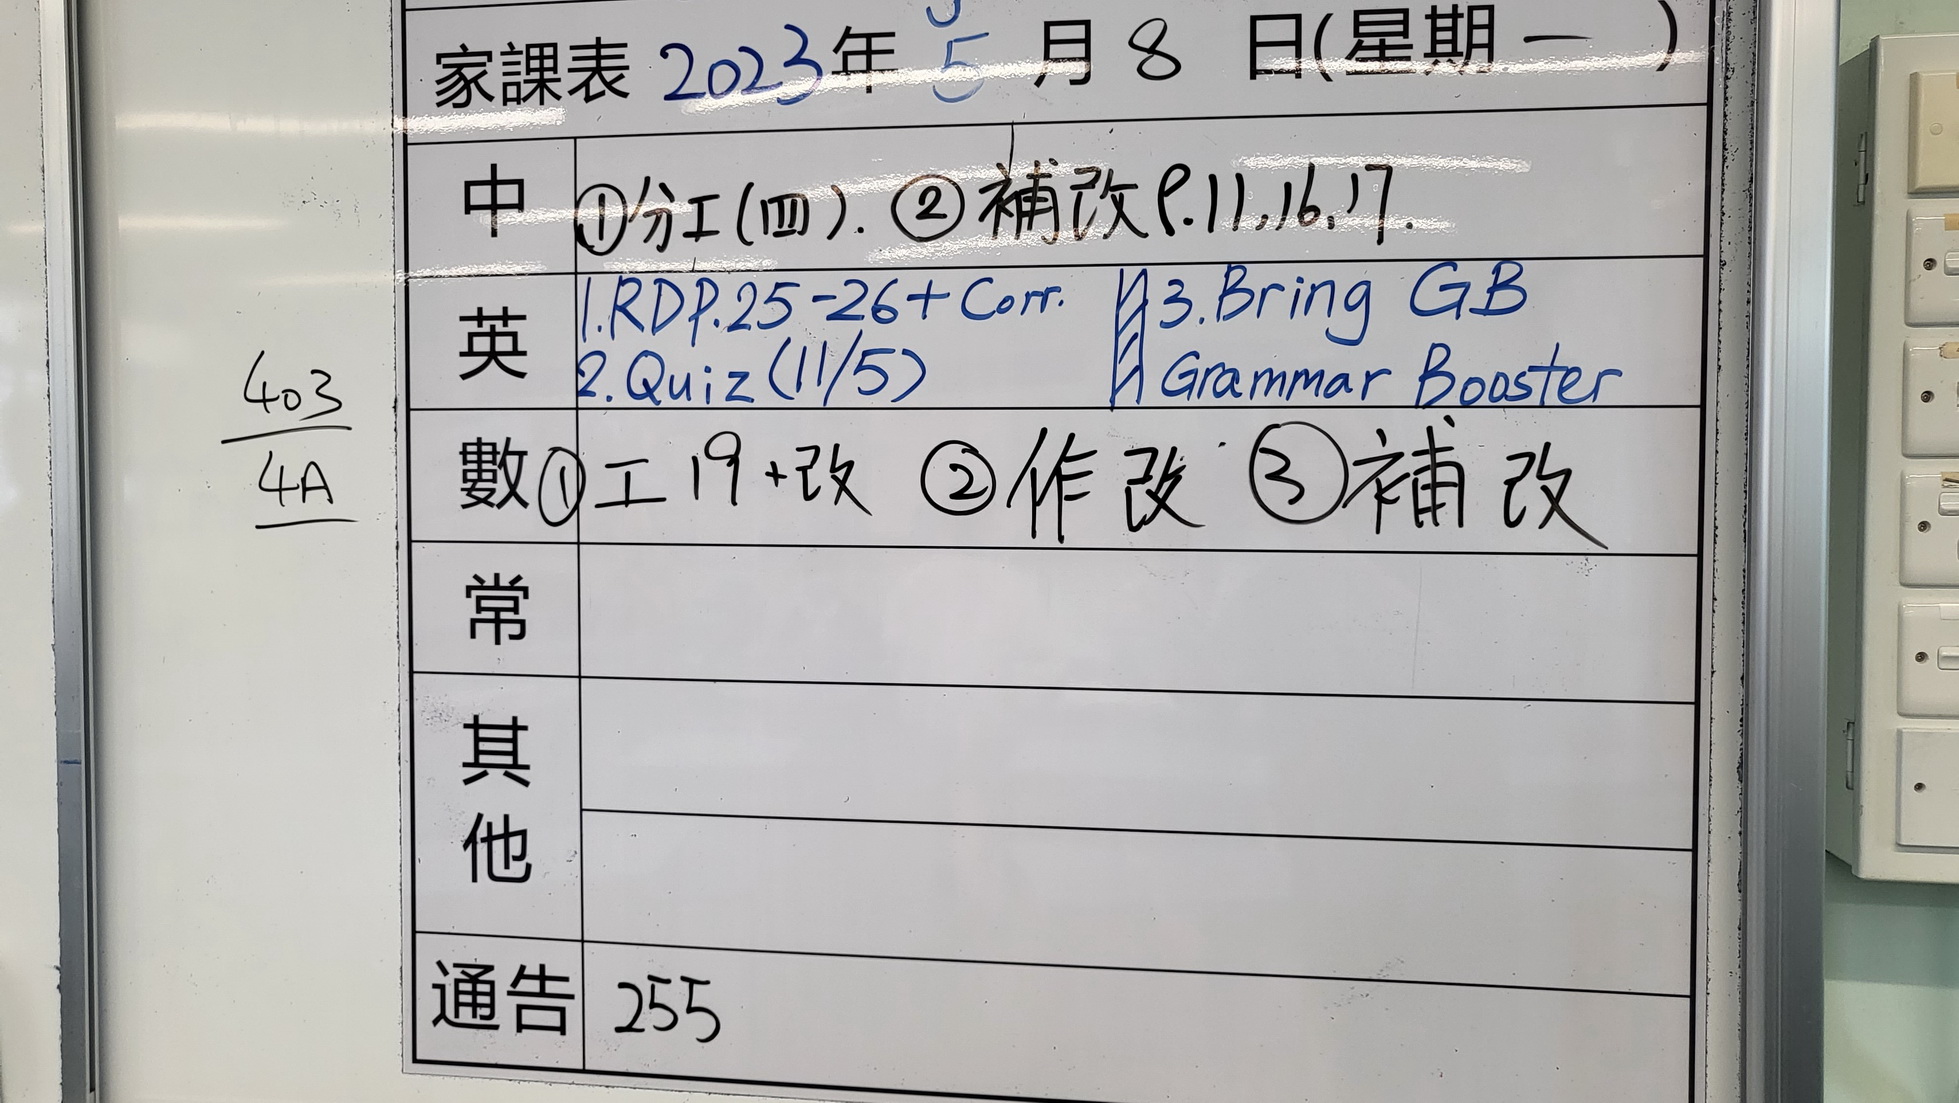 家課表 2023年 5 月 8 日(星期一 )
中 ①分工(四). ②補改P.11,16,17.
英 1.RDP.25-26+Corr. 3.Bring GB
2.Quiz(11/5) Grammar Booster
數 ①工19+改 ②作改 ③補改
常
其他
通告 255
403
4A